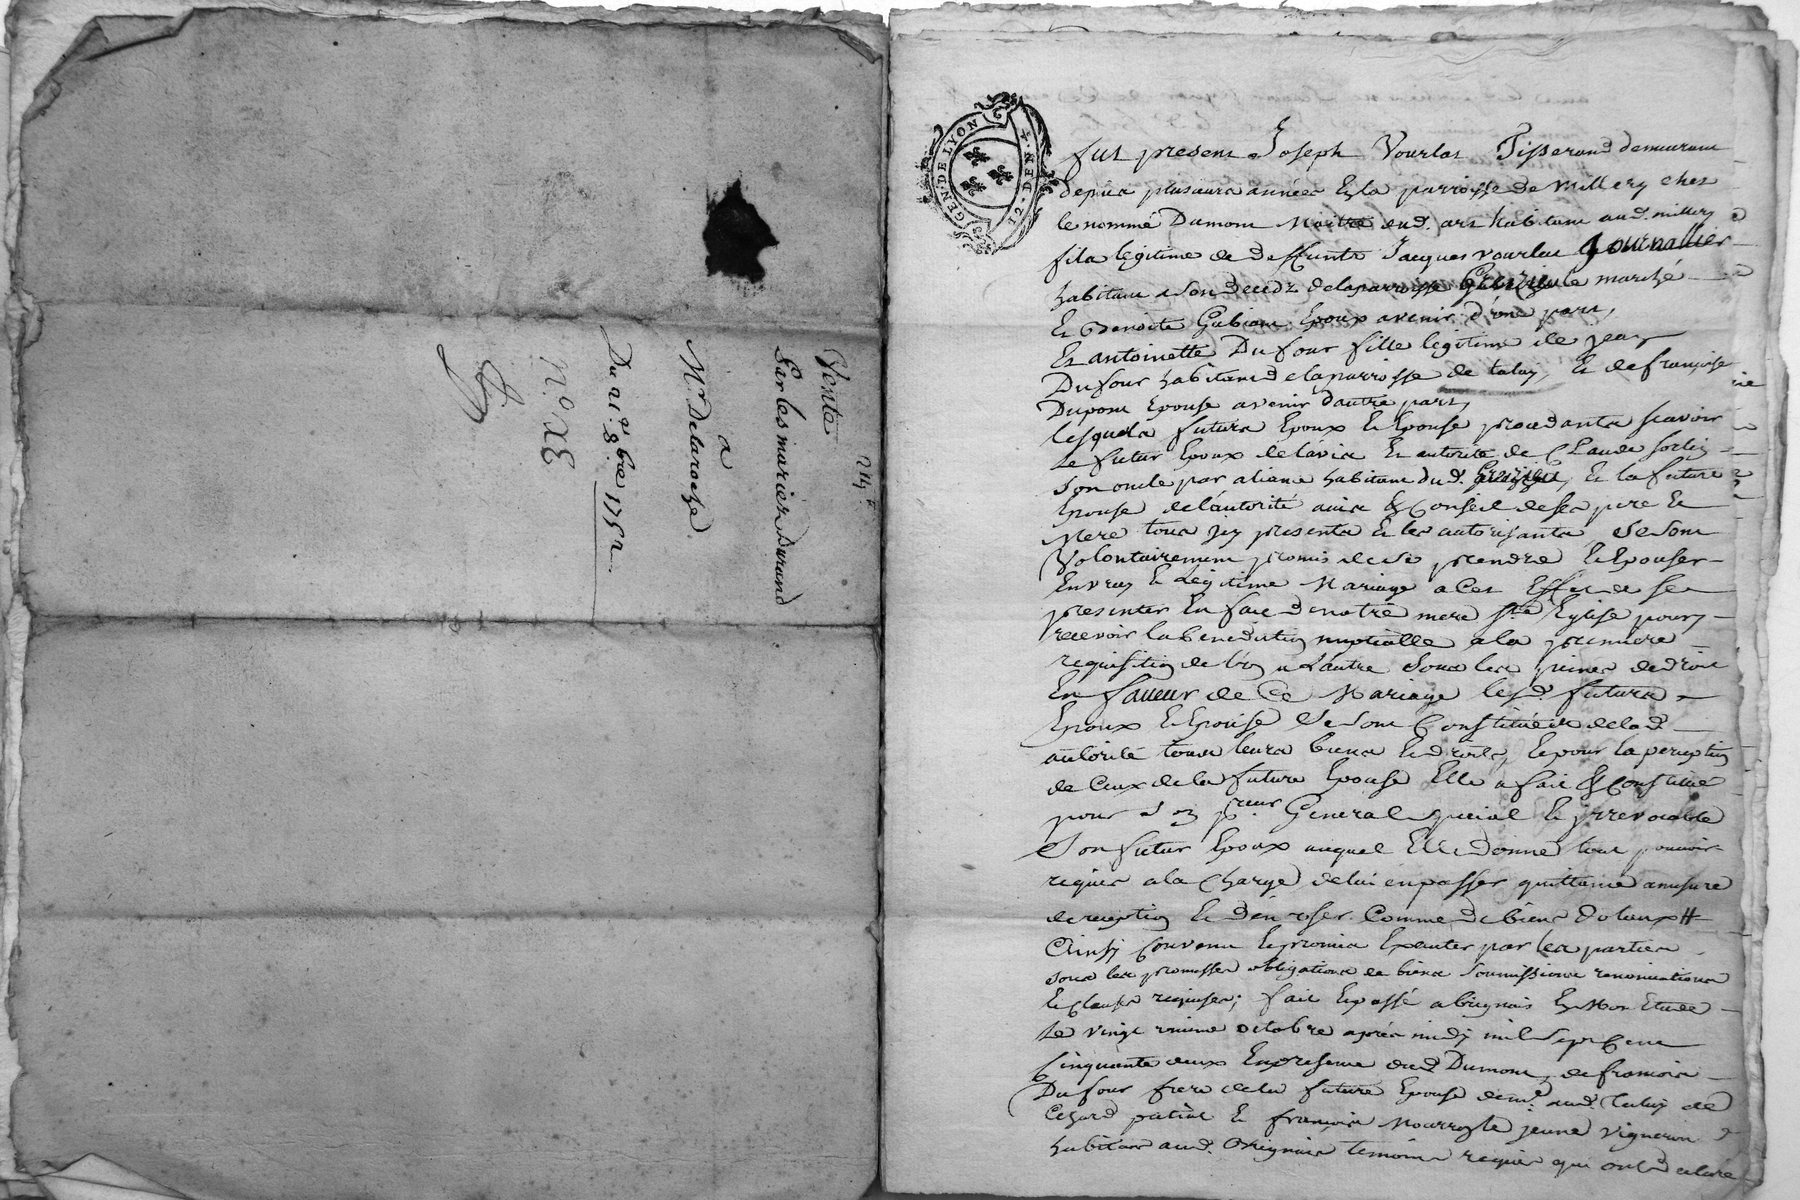 Vente
Par les mariés Durand
a
Mr Delaroche
Du 21e 8bre 1752
n.o
214
GEN·DE LYON
12·DEN
fut present Joseph Vourlat Tisserand demeurant
depuis plusieurs années En la parroisse de Millery chez
le nommé Dumont Maitre aud. art habitant aud. millery
fils legitime de deffunts Jacques vourlat Journallier
habitant a son deced de la parroisse le marché
Et Benoite Gubian Epoux avenir d'une part,
Et antoinette Du four fille legitime de jean
Dufour habitant de la parroisse de taluy, Et de françoise
Dupont Epouse avenir d'autre part,
lesquels futurs Epoux Et Epouse procedants sçavoir
Le futur Epoux de l'avis Et autorité de Claude
son oncle par aliance habitant dud. Et la future
Epouse de l'autorité avis Et Conseil de ses pere Et
Mere tous icy presents Et les autorisants Se sont
Volontairement promis de se prendre Et Epouser
En vray Et Legitime Mariage a Cet Effet de se
presenter En face de notre mere Ste Eglise pour y
recevoir la benediction nuptialle a la premiere
requisition de l'un a L'autre sous les peines de droit
En faveur de Ce Mariage lesd. futurs
Epoux Et Epouse Se sont Constitués de lad.
autorité tous leurs biens Et droits, Et pour la perception
de Ceux de la future Epouse Elle a fait Et Constitué
pour son preur General special Et jrrevocable
Son futur Epoux auquel Elle donne tout pouvoir
requis a la Charge de lui en passer quittance a mesure
de reception Et d'en user Comme de biens Dotaux
Ainsy Convenu Et promis Executer par les parties
sous les promesses obligations de biens soumissions renonciations
Et Clauses requises; fait Et passé a brignais En Mon Etude
Le vingt unieme octobre après midy mil sept Cent
Cinquante deux En presence dud. Dumont, de françois
Du four frere de la future Epouse demt. aud. Taluy de
Cezard Et françois le jeune vigneron
habitans aud. Brignais temoins requis qui ont declaré